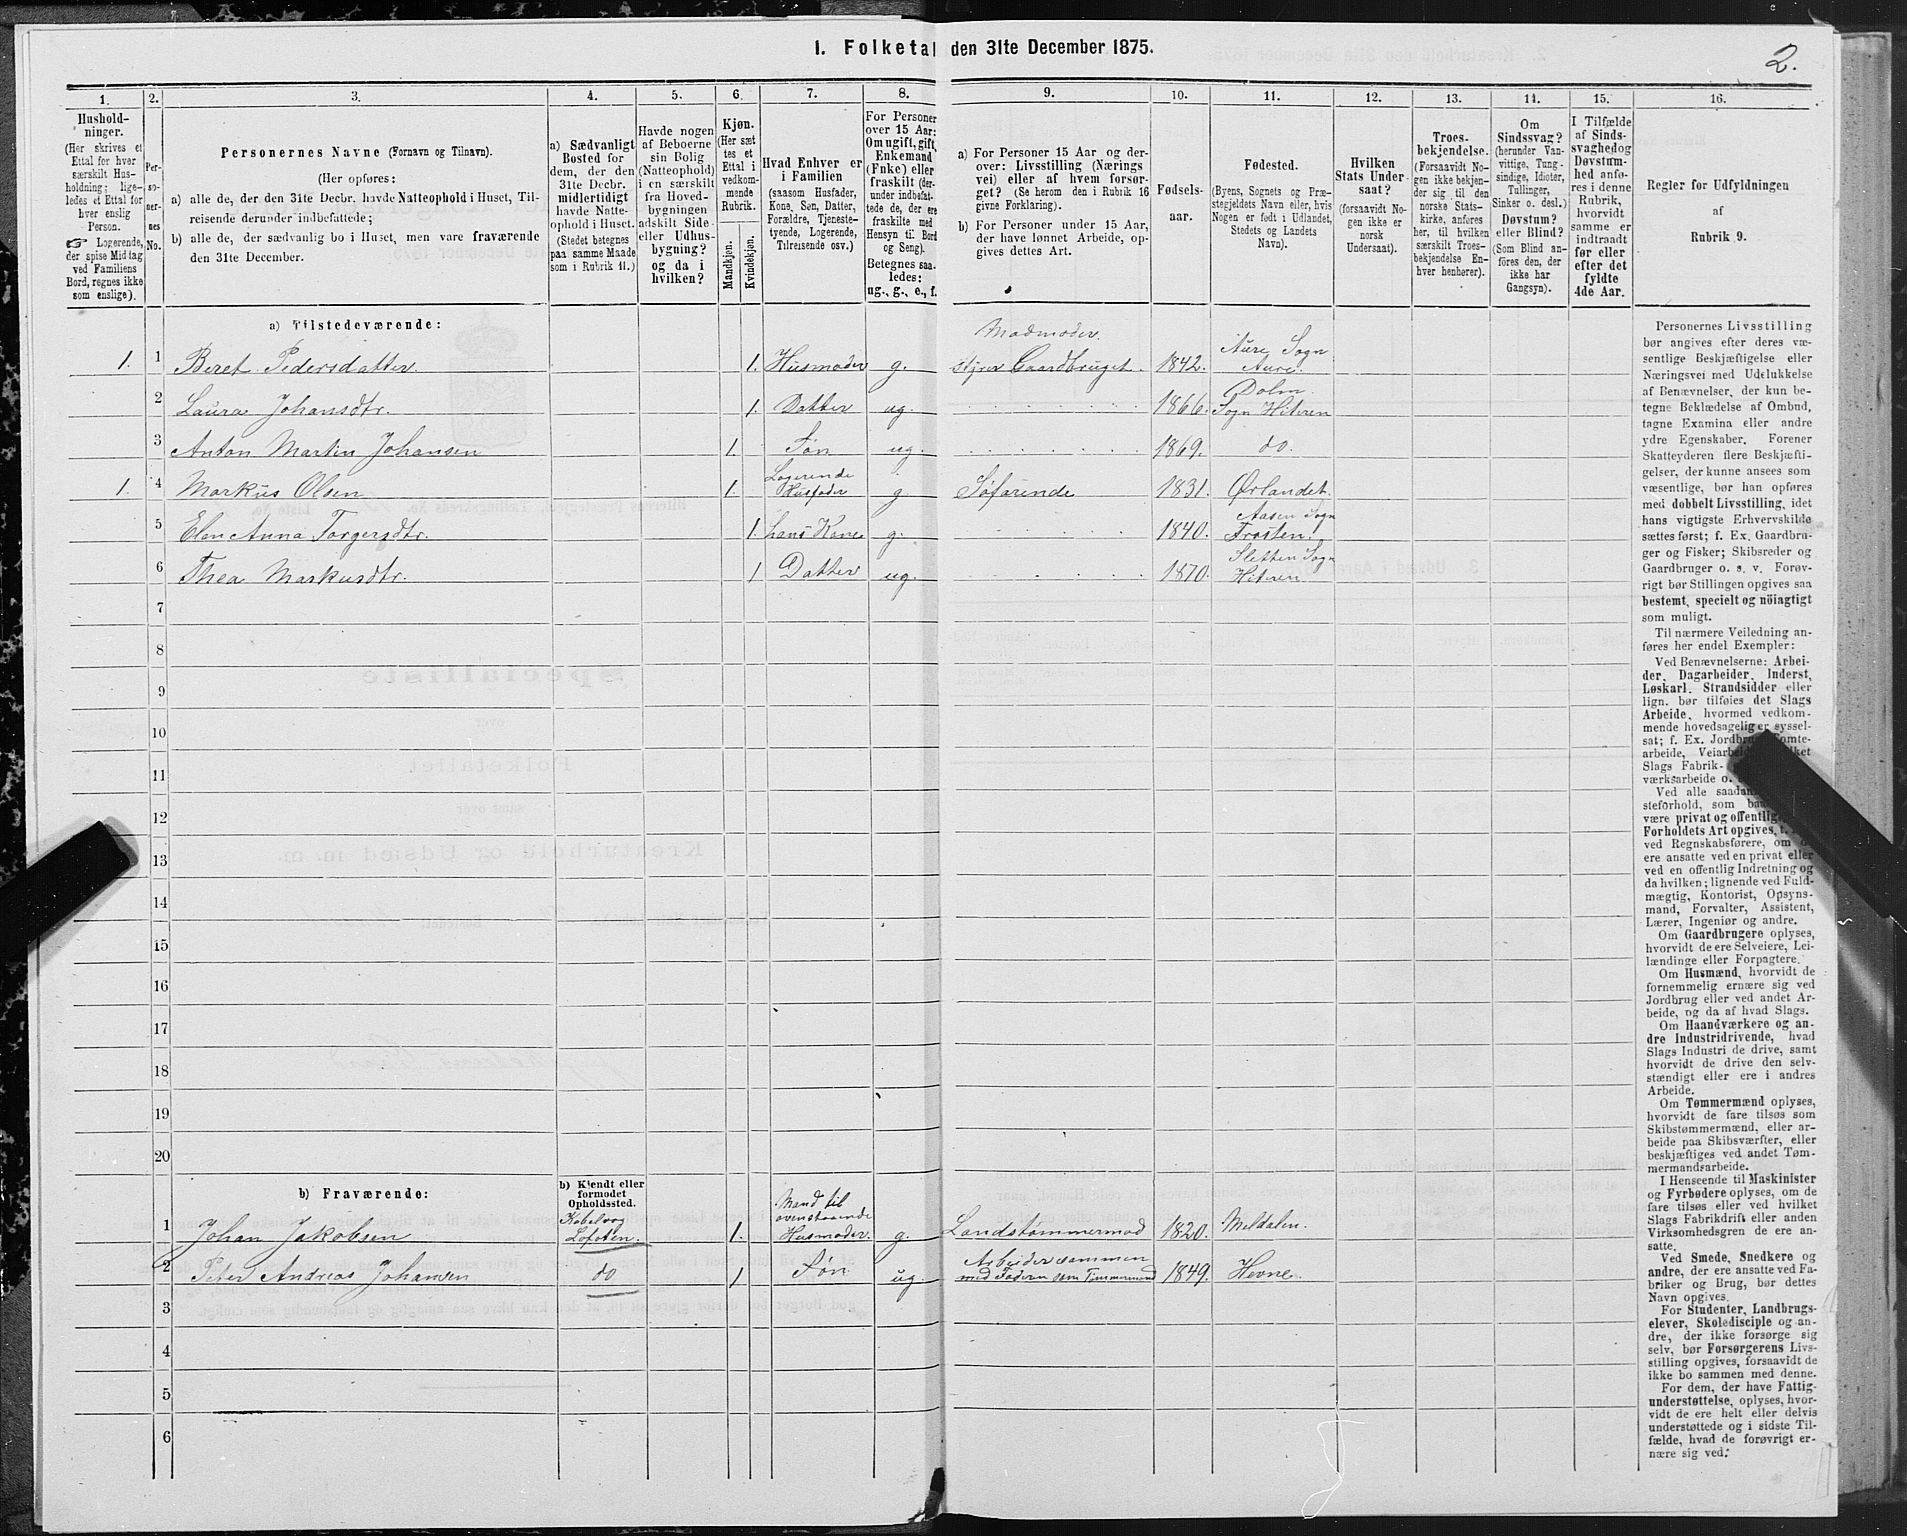 1. Folketal den 31te December 1875.
2.
1. 2. 3. 4. 5. 6. 7. 8. 9. 10. 11. 12. 13. 14. 15. 16.
Hushold-
ninger.
(Her skrives et
Ettal for hver
særskilt Hus-
holdning; lige-
ledes et Ettal for
hver enslig
Person.
☞ Logerende,
der spise Middag
ved Familiens
Bord, regnes ikke
som enslige).
Per-
so-
ner-
nes
No.
Personernes Navne (Fornavn og Tilnavn).
(Her opføres:
a) alle de, der den 31te Decbr. havde Natteophold i Huset, Til-
reisende derunder indbefattede;
b) alle de, der sædvanlig bo i Huset, men vare fraværende
den 31te December.
a) Sædvanligt
Bosted for
dem, der den
31te Decbr.
midlertidigt
havde Natte-
ophold i Huset.
(Stedet betegnes
paa samme Maade
som i Rubrik 11.)
Havde nogen
af Beboerne
sin Bolig
(Natteophold)
i en særskilt
fra Hoved-
bygningen
adskilt Side-
eller Udhus-
bygning?
og da i
hvilken?
Kjøn.
(Her sæt
tes et
Ettal i
vedkom-
mende
Rubrik.
Mandkjøn.
Kvindekjøn.
Hvad Enhver er
i Familien
(saasom Husfader,
Kone, Søn, Datter,
Forældre, Tjeneste-
tyende, Logerende,
Tilreisende osv.)
For Personer
over 15 Aar:
Om ugift, gift,
Enkemand
(Enke) eller
fraskilt (der-
under indbefat-
tede de, der ere
fraskilte med
Hensyn til Bord
og Seng).
Betegnes saa-
ledes:
ug., g., e., f.
a) For Personer 15 Aar og der-
over: Livsstilling (Nærings
vei) eller af hvem forsør-
get? (Se herom den i Rubrik 16
givne Forklaring).
b) For Personer under 15 Aar,
der have lønnet Arbeide, op-
gives dettes Art.
Fødsels-
aar.
Fødested.
(Byens, Sognets og Præ-
stegjeldets Navn eller, hvis
Nogen er født i Udlandet,
Stedets og Landets
Navn).
Hvilken
Stats Under-
saat?
(forsaavidt No-
gen ikke er
norsk
Undersaat).
Troes-
bekjendelse.
(Forsaavidt No-
gen ikke bekjen-
der sig til den
norske Stats-
kirke, anføres
her, til hvilken
særskilt Troes-
bekjendelse En-
hver henhører).
Om
Sindssvag?
(herunder Van-
vittige, Tung-
sindige, Idioter,
Tullinger,
Sinker o. desl.)
Døvstum?
eller Blind?
(Som Blind an-
føres den, der
ikke har
Gangsyn).
I Tilfælde
af Sinds-
svaghed og
Døvstum-
hed anfø-
res i denne
Rubrik,
hvorvidt
samme er
indtraadt
før eller
efter det
fyldte
4de Aar.
Regler for Udfyldningen
af
Rubrik 9.
a) Tilstedeværende:
1. 1 Beret Pedersdatter. 1. Husmoder g. Madmoder. styrer Gaardbruget. 1842. Aure Sogn Aure.
2 Laura Johansdtr. 1. Datter ug. 1866. Dolm Sogn Hiteren
3 Anton Martin Johansen 1. Søn ug. 1869. do.
1. 4 Markus Olsen 1. Logerende Husfader g. Søfarende 1831. Ørlandet.
5 Elen Anna Torgersdtr. 1. hans Kone g. 1840. Aasen Sogn Frosten.
6 Thea Markusdtr. 1 Datter ug. 1870. Sletten Sogn Hiteren
7
8
9
10
11
12
13
14
15
16
17
18
19
20
b) Fraværende:
b) Kjendt eller
formodet
Opholdssted.
1 Johan Jakobsen Kabelvaag Lofoten. 1. Mand til ovenstaaende Husmoder. g. Landstømmermad 1820. Meldalen.
2 Peter Andreas Johansen do 1 Søn ug. Arbeider sammen med Faderen som Tømmermand 1849. Hevne.
3
4
5
6
Personernes Livsstilling
bør angives efter deres væ-
sentlige Beskjæftigelse eller
Næringsvei med Udelukkelse
af Benævnelser, der kun be-
tegne Beklædelse af Ombud,
tagne Examina eller andre
ydre Egenskaber. Forener
Skatteyderen flere Beskjæfti-
gelser, der kunne ansees som
væsentlige, bør han opføres
med dobbelt Livsstilling, idet
hans vigtigste Erhvervskilde
sættes først; f. Ex. Gaardbru-
ger og Fisker; Skibsreder og
Gaardbruger o. s. v. Forøv-
rigt bør Stillingen opgives saa
bestemt, specielt og nöiagtigt
som muligt.
Til nærmere Veiledning an-
føres her endel Exempler:
Ved Benævnelserne: Arbei-
der, Dagarbeider, Inderst,
Løskarl, Strandsidder eller
lign. bør tilføies det Slags
Arbeide, hvormed vedkom-
mende hovedsagelig er syssel-
sat; f. Ex. Jordbrug, Tomte-
arbeide, Veiarbeide, hvilket
Slags Fabrik-
værksarbeide o.
Ved alle saadanne
steforhold, som
være privat og offentlig,
Forholdets Art opgives, t.
ved Regnskabsførere, om
ere ansatte ved en privat eller
ved en offentlig Indretning og
da hvilken; lignende ved Fuld-
mægtig, Kontorist, Opsyns-
mand, Forvalter, Assistent,
Lærer, Ingeniør og andre.
Om Gaardbrugere oplyses,
hvorvidt de ere Selveiere, Lei-
lændinge eller Forpagtere.
Om Husmænd, hvorvidt de
fornemmelig ernære sig ved
Jordbrug eller ved andet Ar-
beide, og da af hvad Slags.
Om Haandværkere og an-
dre Industridrivende, hvad
Slags Industri de drive, samt
hvorvidt de drive den selv-
stændigt eller ere i andres
Arbeide.
Om Tømmermænd oplyses,
hvorvidt de fare tilsøs som
Skibstømmermænd, eller ar-
beide paa Skibsværfter, eller
beskjæftiges ved andet Tøm-
mermandsarbeide.
I Henseende til Maskinister
og Fyrbødere oplyses, om de
fare tilsøs eller ved hvilket
Slags Fabrikdrift eller anden
Virksomhedsgren de ere an-
satte.
Ved Smede, Snedkere og
andre, der ere ansatte ved Fa-
briker og Brug, bør dettes
Navn opgives.
For Studenter, Landbrugs-
elever, Skoledisciple og an-
dre, der ikke forsørge sig
selv, bør Forsørgerens Livs-
stilling opgives, forsaavidt de
ikke bo sammen med denne.
For dem, der have Fattig-
understøttelse, oplyses, hvor-
vidt de ere helt eller delvis
understøttede og i sidste Til-
fælde, hvad de forøvrigt er-
nære sig ved.